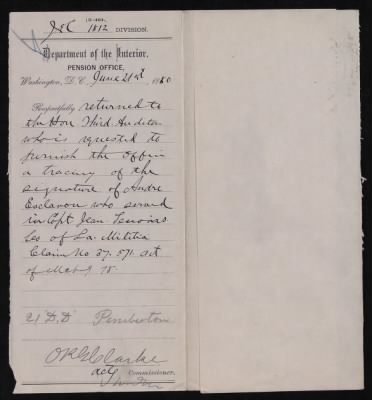 J&C 1812 DIVISION.
Department of the Interior,
PENSION OFFICE,
Washington, D. C., June 21st, 1880
Respectfully returned to
the Hon Third Auditor
who is requested to
furnish the office
a tracing of the
signature of Andre
Esclavon who served
in Capt Jean
Co of La. Militia
Claim No 37.571. Act
of Mch 9 78.
Pemberton
O P G Clarke
actg Commissioner.